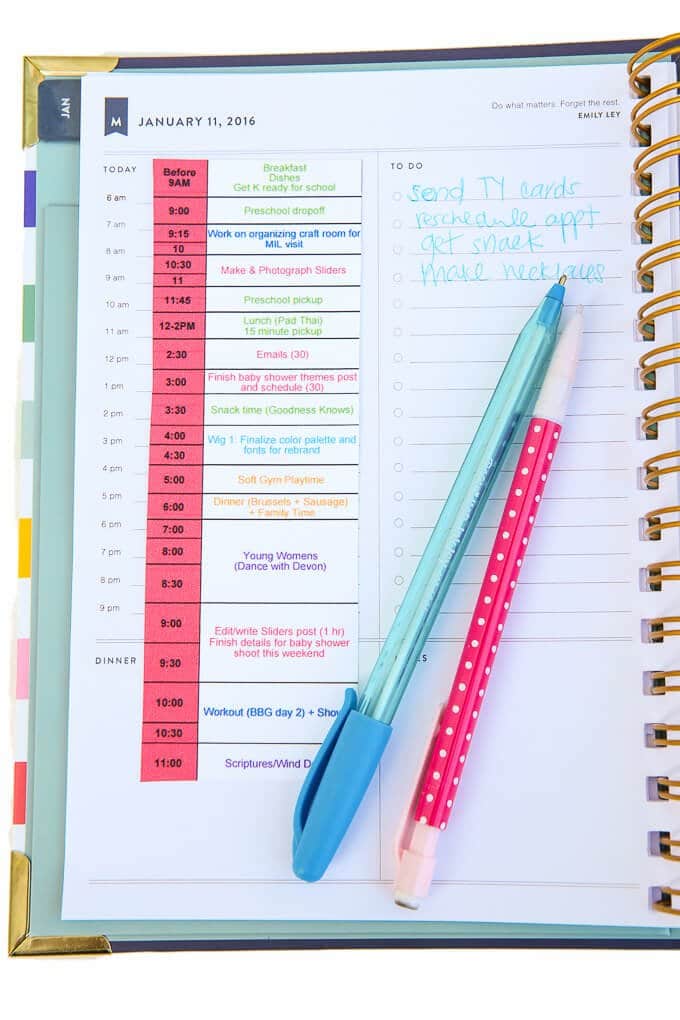 JAN
M
JANUARY 11, 2016
Do what matters. Forget the rest.
EMILY LEY
TODAY
6 am
7 am
8 am
9 am
10 am
11 am
12 pm
1 pm
2 pm
3 pm
4 pm
5 pm
6 pm
7 pm
8 pm
9 pm
DINNER
Before
9AM
Breakfast
Dishes
Get K ready for school
9:00
Preschool dropoff
9:15
10
Work on organizing craft room for
MIL visit
10:30
11
Make & Photograph Sliders
11:45
Preschool pickup
12-2PM
Lunch (Pad Thai)
15 minute pickup
2:30
Emails (30)
3:00
Finish baby shower themes post
and schedule (30)
3:30
Snack time (Goodness Knows)
4:00
4:30
Wig 1: Finalize color palette and
fonts for rebrand
5:00
Soft Gym Playtime
6:00
Dinner (Brussels + Sausage)
+ Family Time
7:00
8:00
8:30
Young Womens
(Dance with Devon)
9:00
9:30
Edit/write Sliders post (1 hr)
Finish details for baby shower
shoot this weekend
10:00
10:30
Workout (BBG day 2) +
11:00
Scriptures/Wind
TO DO
send TY cards
reschedule appt
get snack
make necklaces